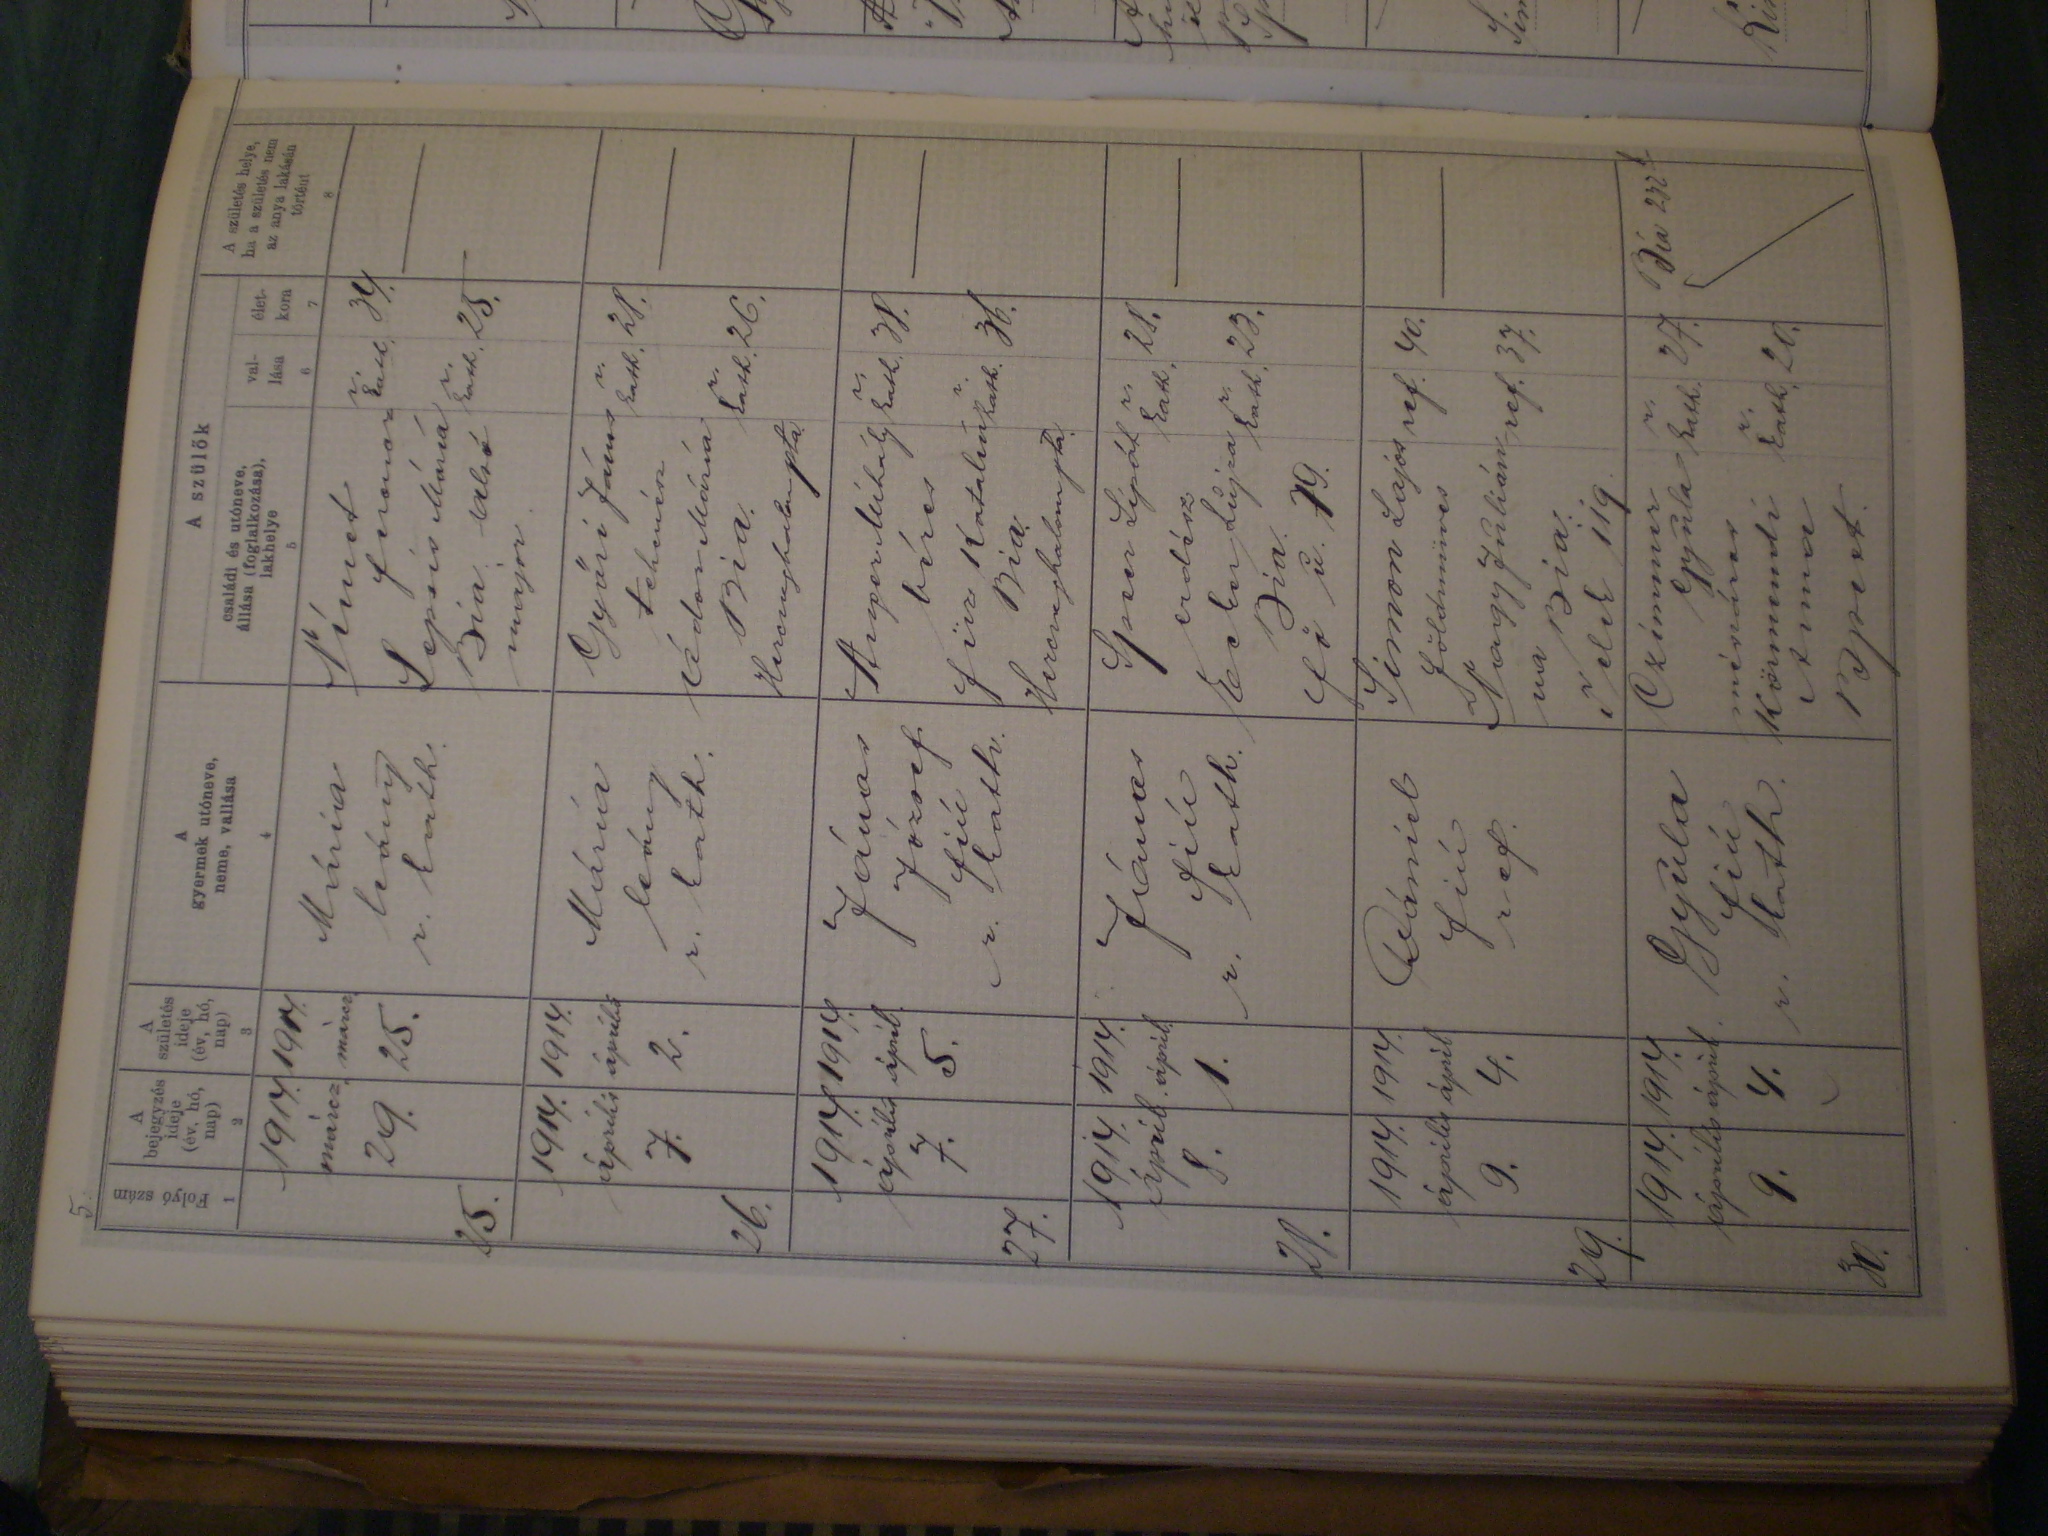 5.
Folyó szám
1
A bejegyzés ideje (év, hó, nap)
2
A születés ideje (év, hó, nap)
3
A gyermek utóneve, neme, vallása
4
A szülők
családi és utóneve, állása (foglalkozása), lakhelye
5
val-lása
6
élet-kora
7
A születés helye, ha a születés nem az anya lakásán történt
8
25.
1914. márcz. 29.
1914. márcz. 25.
Mária
leány
r. kath.
Német
Ferencz
r. kath. 34.
Lepsis Mária
r. kath. 25.
Bia alsó
major.
26.
1914. április 7.
1914. április 2.
Mária
leány
r. kath.
Győri János
r. kath. 28.
tehenész
Mária
r. kath. 26.
Bia.
Herczeghalompta.
27.
1914. április 7.
1914. ápril. 5.
János
József
fiú
r. kath.
Mihály
r. kath. 38.
béres
Katalin
r. kath. 36.
Bia
Herczeghalompta.
28.
1914. ápril. 8.
1914. ápril. 1.
János
fiú
r. kath.
Lipót
r. kath. 28.
erdész
Lujza
r. kath. 23.
Bia.
Fő u. 79.
29.
1914. április 9.
1914. április 4.
Dániel
fiú
ref.
Simon Lajos
ref. 40.
földmüves
Nagy Juliánna
ref. 37.
Bia.
Telek 119.
30.
1914. április 9.
1914. ápril. 4.
Gyula
fiú
r. kath.
Czimmer
Gyula
r. kath. 27.
mészáros
Körmendi
Anna
r. kath. 20.
Bpest.
Bia 232